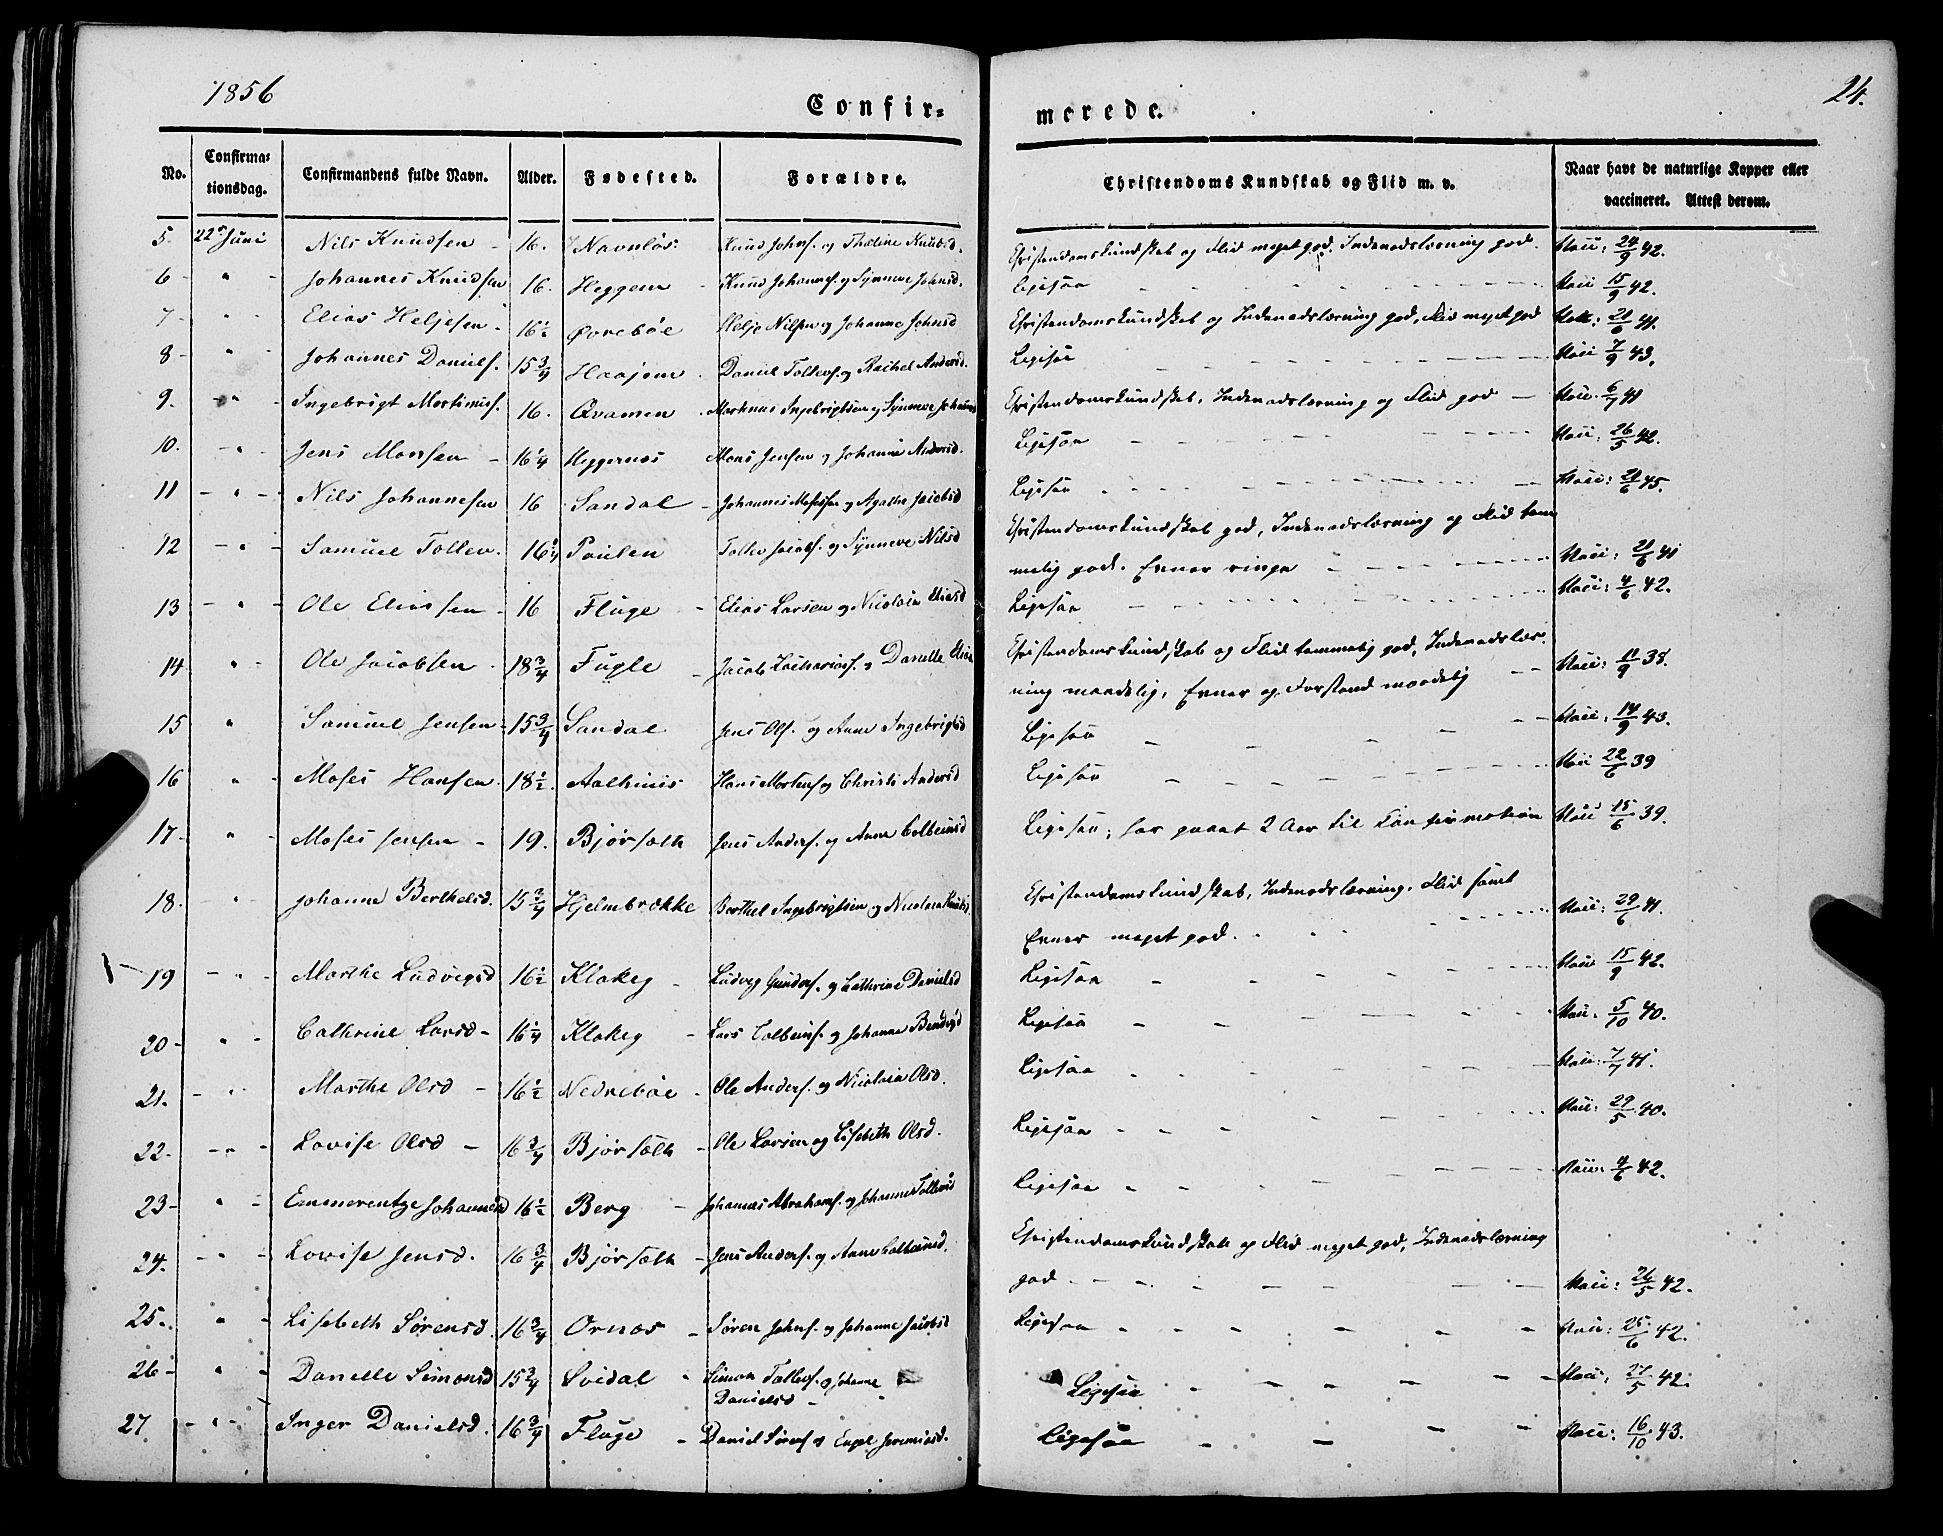 1856
24.
Confir=
merede.
No. Confirma=tionsdag. Confirmandens fulde Navn. Alder. Fødested. Forældre. Christendoms Kundskab og Flid m. v. Naar havt de naturlige Kopper eller vaccineret. Attest derom.
5. 22de Juni Nils Knudsen - 16. Navnløs Knud Johns. og Thrine Knudsd. Christendomskundskab og Flid meget god. Indenadslæsning god. Vacc: 24/9 42.
6 " Johannes Knudsen 16. Heggem - Knud Johannes. og Synneve Johnsd. Ligesaa Vacc 15/9 42.
7 " Elias Heljesen - 16½ Øvrebøe Helje Nilsen og Johanne Johnsd Christendomskundskab og Indenadslæsning god, Flid meget god Vacc: 21/6 41.
8 " Johannes Daniels. 15¾ Haajem Daniel Tollevs. og Rachel Andersd. Ligesaa Vacc 7/9 43.
9. " Ingebrigt Mortinus. 16. Qvamen Martinus Ingebrigtsen og Synneve Christendomskundskab, Indenadslæsning og Flid god Vacc. 6/7 41
10. " Jens Monsen - 16¼ Heggernæs Mons Jensen og Johanne Andersd. Ligesaa Vacc: 26/5 42.
11 " Nils Johannesen 16 Sandal Johannes Mosessen og Agathe Jacobsd Ligesaa Vacc: 21/6 45.
12 " Samuel Tollev. 16¼ Paulen Tollev Jacobs. og Synneve Nilsd Christendomskundskab god, Indenadslæsning og Flid tem
melig god. Evner ringe Vacc: 21/6 41
13 " Ole Eliassen - 16 Fluge Elias Larsen og Nicolain Eliasd Ligesaa Vacc: 4/6 42.
14 " Ole Jacobsen 18¾ Fugle Jacob Zachariass. og Danelle Christendomskundskab og Flid temmelig god, Indenadslæs-
ning maadelig, Evner og Forstand maadelig Vacc: 11/9 38.
15 " Samuel Jensen 15¾ Sandal Jens Ols. og Anne Ingebrigtsd Ligesaa Vacc: 14/9 43.
16 " Moses Hansen. 18½ Aalhuus Hans Mortens og Christi Andersd Ligesaa Vacc 22/6 39
17 " Moses Jensen - 19. Bjørsæth Jens Anders. og Anne Colbeinsd Ligesaa; har gaaet 2 Aar til Confirmation Vacc 15/6 39.
18. " Johanne Berthelsd. 15¾ Hjelmbrække Berthel Ingebrigtsen og Nicolaia Christendomskundskab, Indenadslæsning, Flid samt
Evner meget god. Vacc: 29/6 41.
19 " Marthe Ludvigsd 16½ Klakeg - Ludvig Gunders. og Cathrine Danielsd Ligesaa Vacc 15/9 42.
20 " Cathrine Larsd - 16¼ Klakeg - Lars Colbeins. og Johanne Ligesaa Vacc. 5/10 40.
21. " Marthe Olsd - 16½ Nedrebøe - Ole Anders. og Nicolaia Olsd. Ligesaa Vacc: 7/7 41.
22. " Lovise Olsd - 16¾ Bjørsæth - Ole Larsen og Lisebeth Olsd. Ligesaa Vacc: 29/5 40.
23 " Emmerentze Johannesd 16½ Berg - Johannes Abrahams. og Johanne Tollevsd Ligesaa Vacc: 4/6 42.
24. " Lovise Jensd. 16¾ Bjørsæth - Jens Anders. og Anne Colbeinsd. Christendomskundskab og Flid meget god, Indenadslæsning
god. Vacc: 26/5 42.
25. " Lisebeth Sørensd. 16¾ Ornæs - Søren Johns. og Johanne Jacobsd Ligesaa Vacc: 25/6 42.
26 " Danelle Simonsd 15¾ Svidal - Simon Tollevs. og Johanne
Danielsd - Ligesaa Vacc: 27/5 42.
27 " Inger Danielsd. 16¾ Fluge - Daniel Sørens og Engel Jeremiasd. Ligesaa Vacc: 16/10 43.